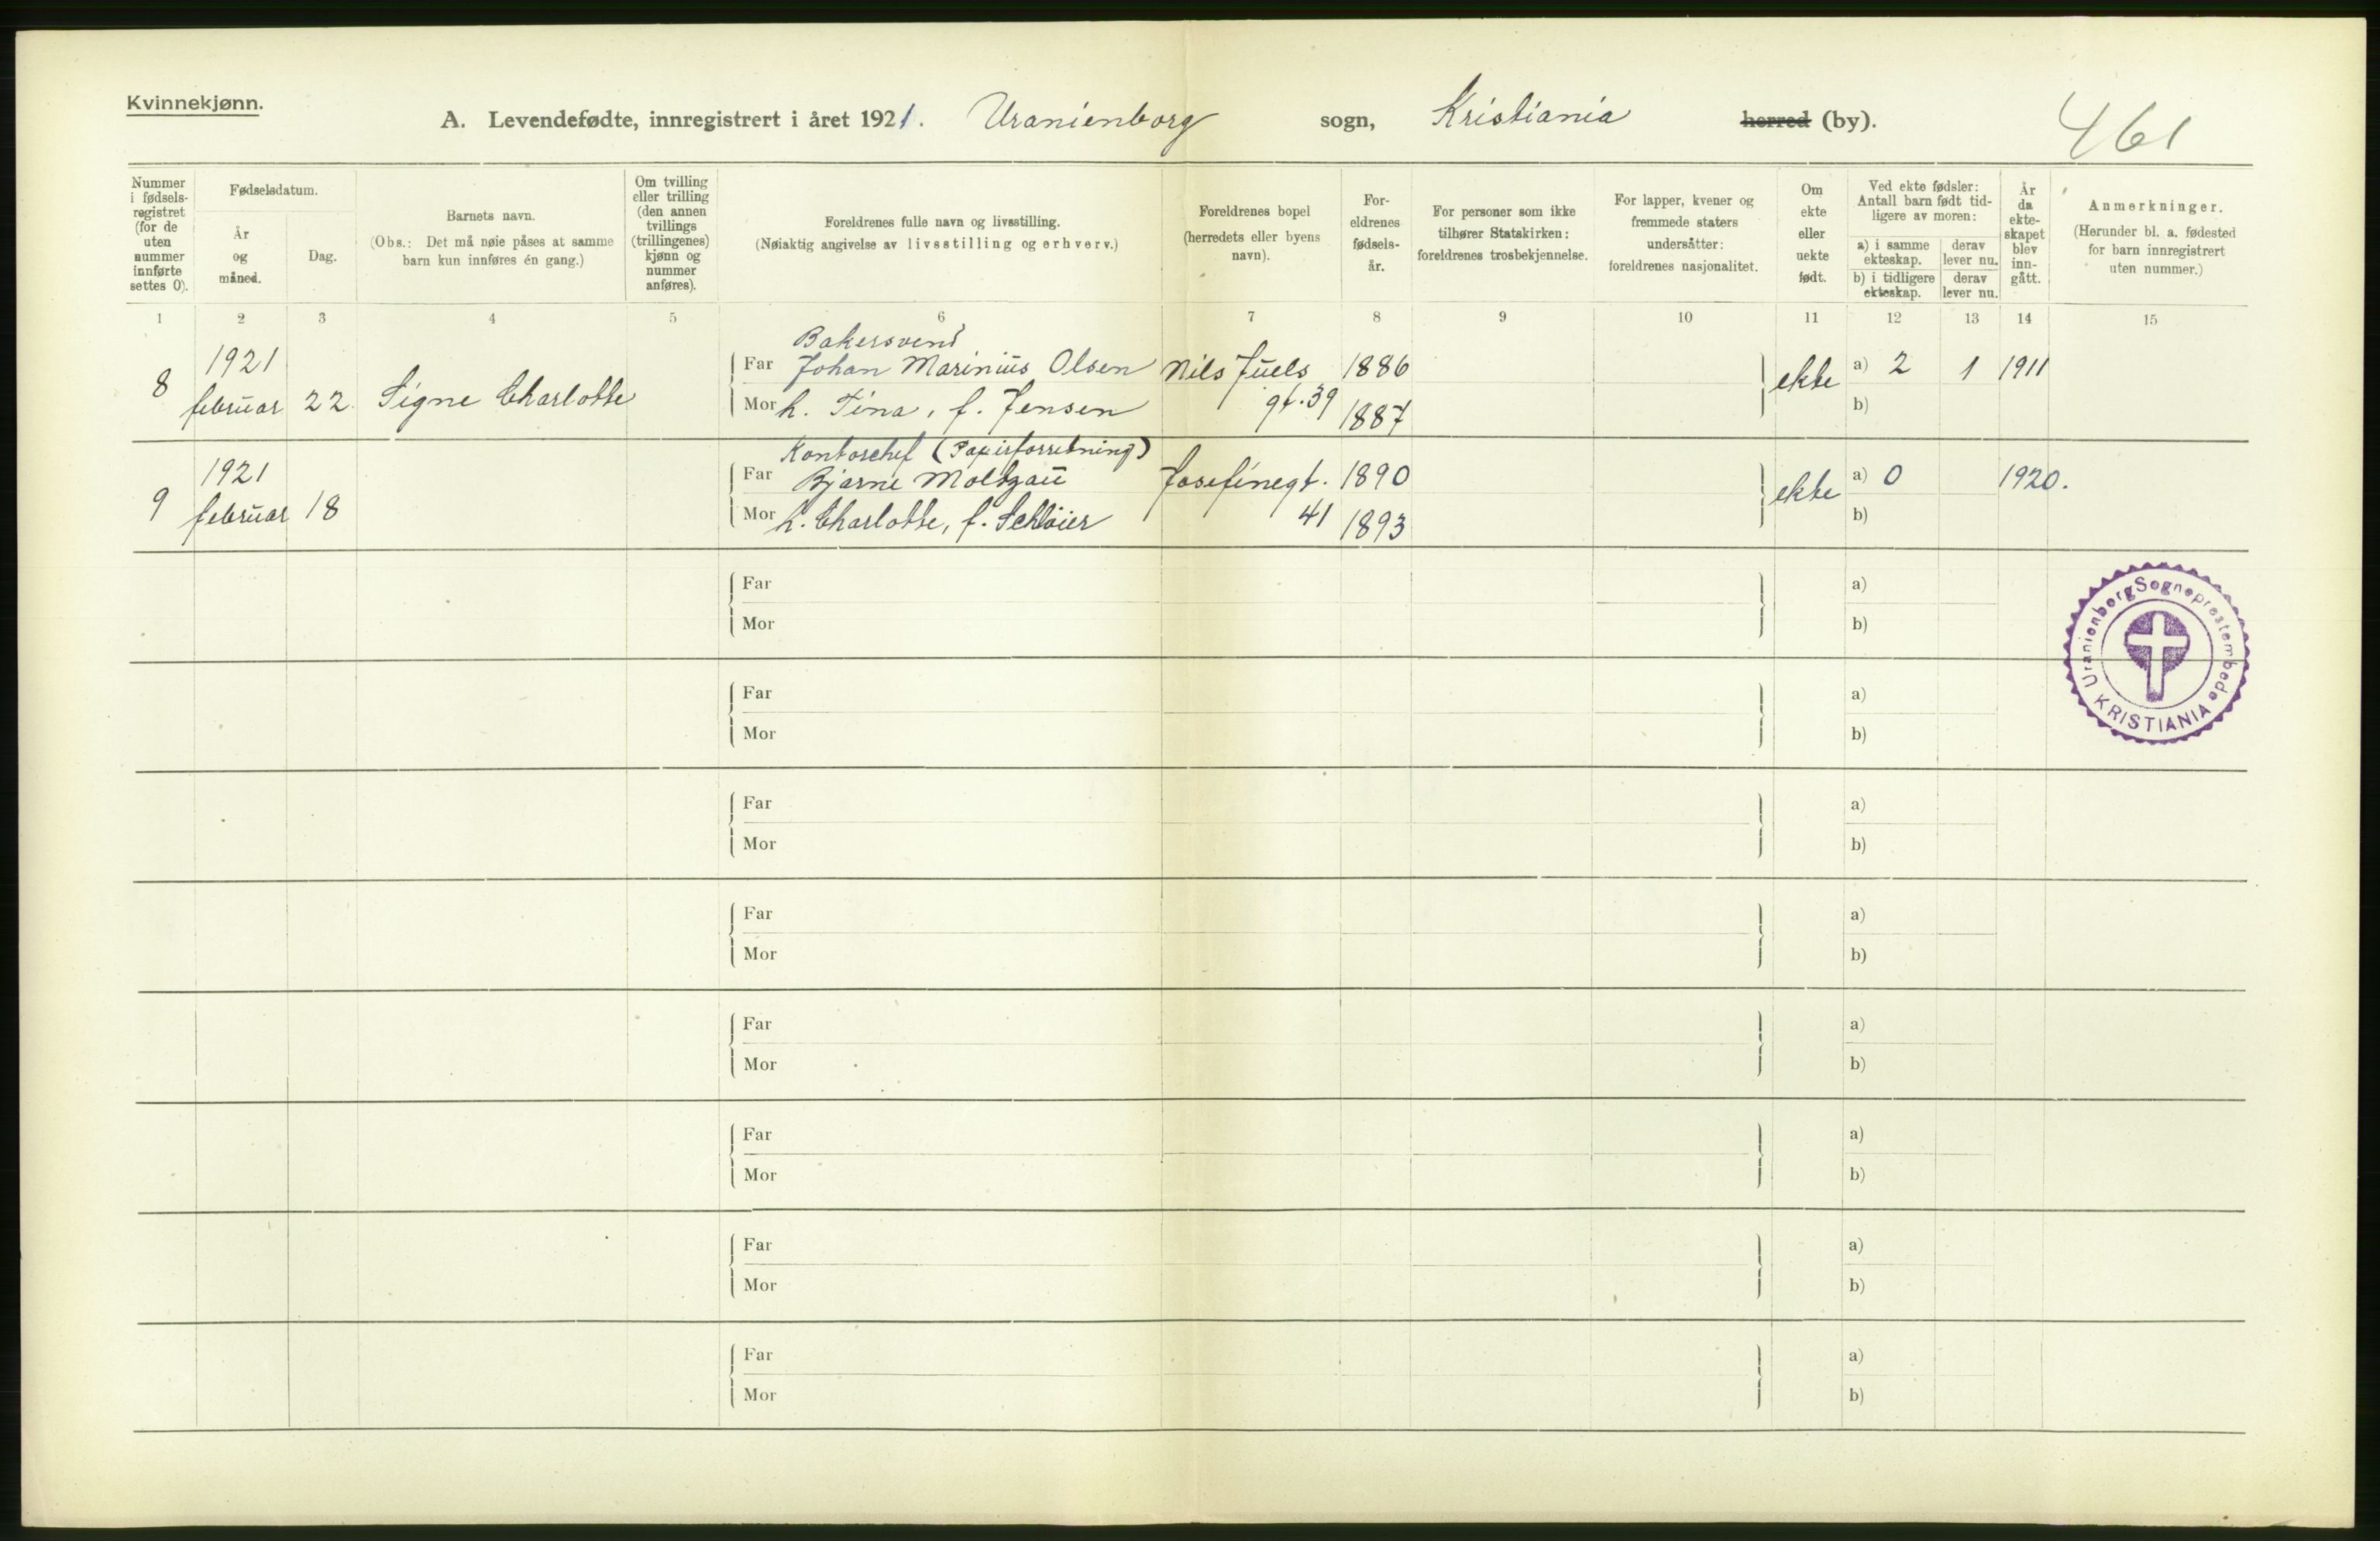 Kvinnekjønn.
A. Levendefødte, innregistrert i året 1921. Uranienborg sogn, Kristiania herred (by).
461
Nummer i fødselsregistret (for de uten nummer innførte settes 0).
Fødselsdatum.
År og måned.
Dag.
Barnets navn.
(Obs.: Det må nøie påses at samme barn kun innføres én gang.)
Om tvilling eller trilling (den annen tvillings (trillingenes) kjønn og nummer anføres).
Foreldrenes fulle navn og livsstilling.
(Nøiaktig angivelse av livsstilling og erhverv.)
Foreldrenes bopel (herredets eller byens navn).
Foreldrenes fødselsår.
For personer som ikke tilhører Statskirken: foreldrenes trosbekjennelse.
For lapper, kvener og fremmede staters undersåtter: foreldrenes nasjonalitet.
Om ekte eller uekte født.
Ved ekte fødsler: Antall barn født tidligere av moren:
a) i samme ekteskap.
derav lever nu.
b) i tidligere ekteskap.
derav lever nu.
År da ekteskapet blev inngått.
Anmerkninger.
(Herunder bl. a. fødested for barn innregistrert uten nummer.)
1 2 3 4 5 6 7 8 9 10 11 12 13 14 15
Bakersvend
8 1921 Far Johan Marinius Olsen Nils Juels 1886 ekte a) 2 1 1911
februar 22. Signe Charlotte Mor h. Tina, f. Jensen gt. 39 1887 b)
Kontorchef (Papirforretning)
9 1921 Far Bjarne Moltzau Josefinegt. 1890 ekte a) 0 1920.
februar 18 Mor h. Charlotte, f. Schløier 41 1893 b)
Far a)
Mor b)
Uranienborg Sogneprestembede KRISTIANIA
Far a)
Mor b)
Far a)
Mor b)
Far a)
Mor b)
Far a)
Mor b)
Far a)
Mor b)
Far a)
Mor b)
Far a)
Mor b)